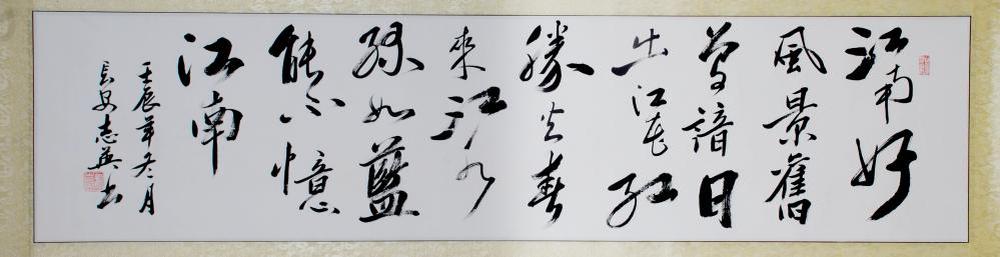 江南好
風景舊
曾諳日
出江花紅
勝火春
來江水
綠如藍
能不憶
江南
壬辰年冬月
長安志英書